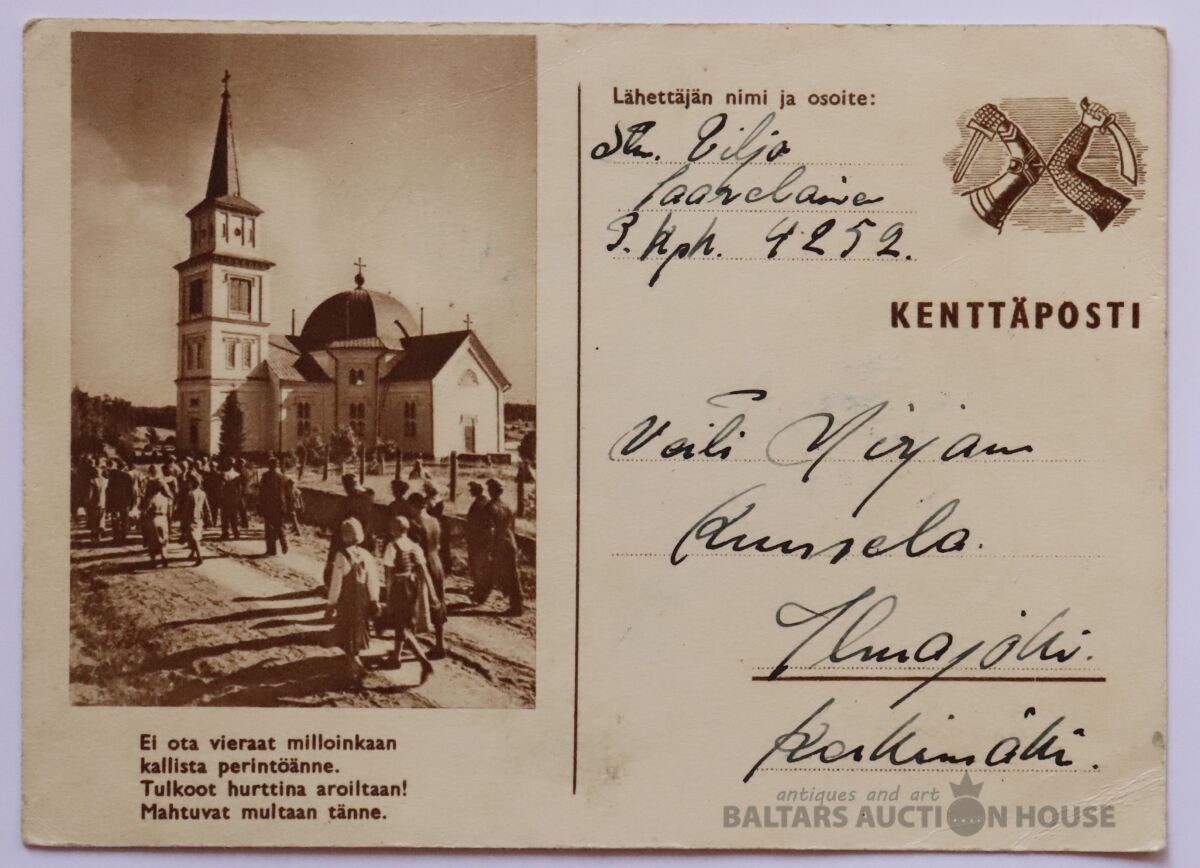 Lähettäjän nimi ja osoite:
Stm. Viljo
Saarelainen
3. Kpk. 4252.
KENTTÄPOSTI
Veili Mirjam
Kuusela.
Ilmajoki.
Koskimäki.
Ei ota vieraat milloinkaan
kallista perintöänne.
Tulkoot hurttina aroiltaan!
Mahtuvat multaan tänne.
antiques and art
BALTARS AUCTION HOUSE